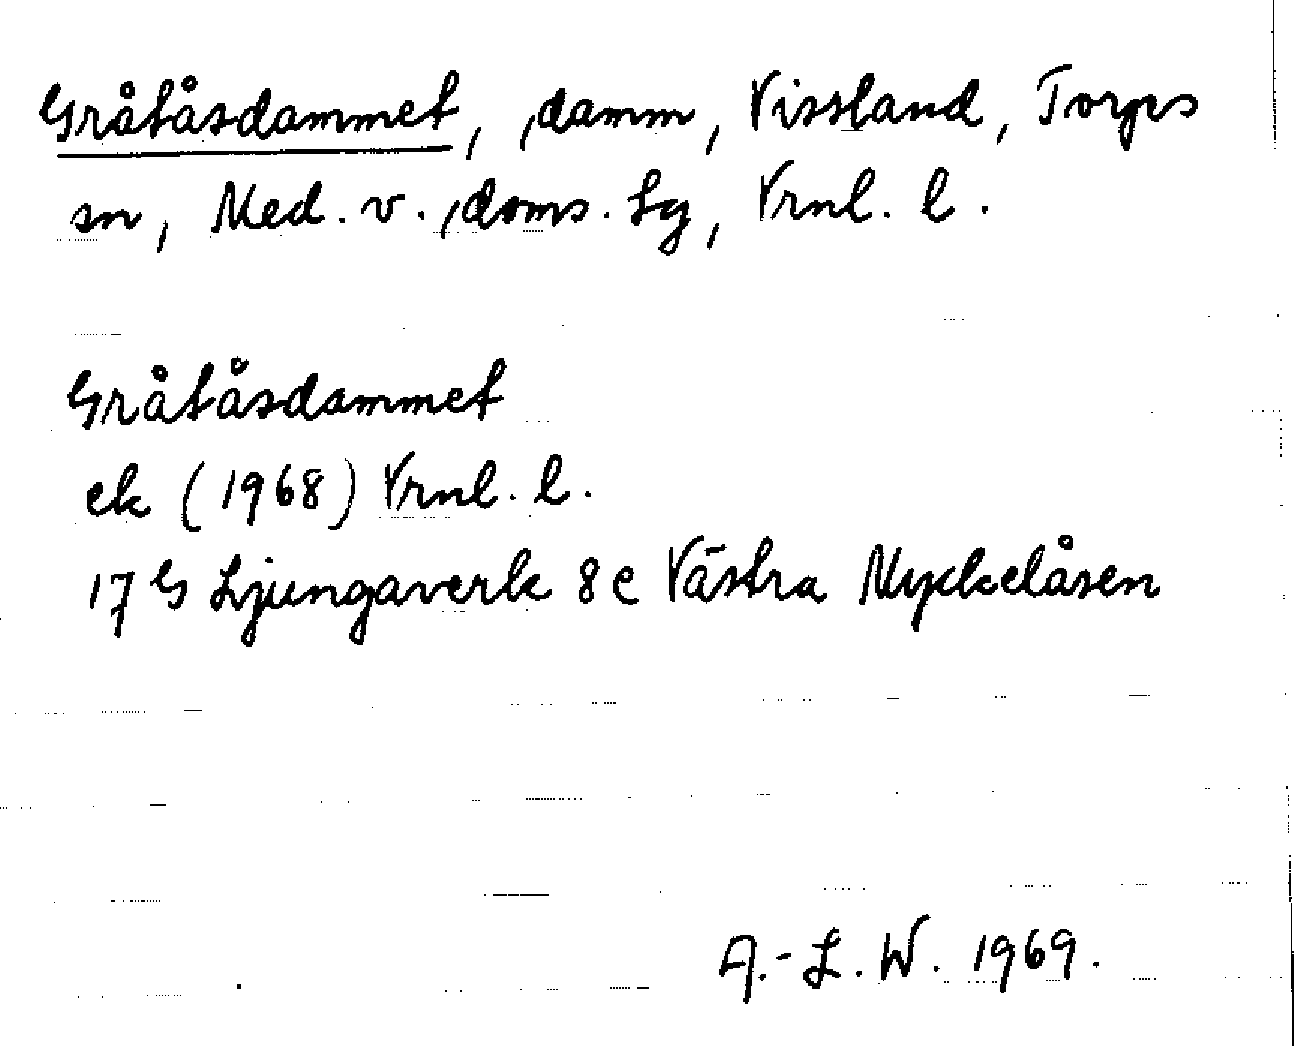 Gråtåsdammet, damm, Vissland, Torps
sn, Med. v., doms. Lg, Vrnl. l.
Gråtåsdammet
ek (1968) Vrnl. l.
17 G Ljungaverk 8 e Västra Nyckelåsen
A.-L. W. 1969.